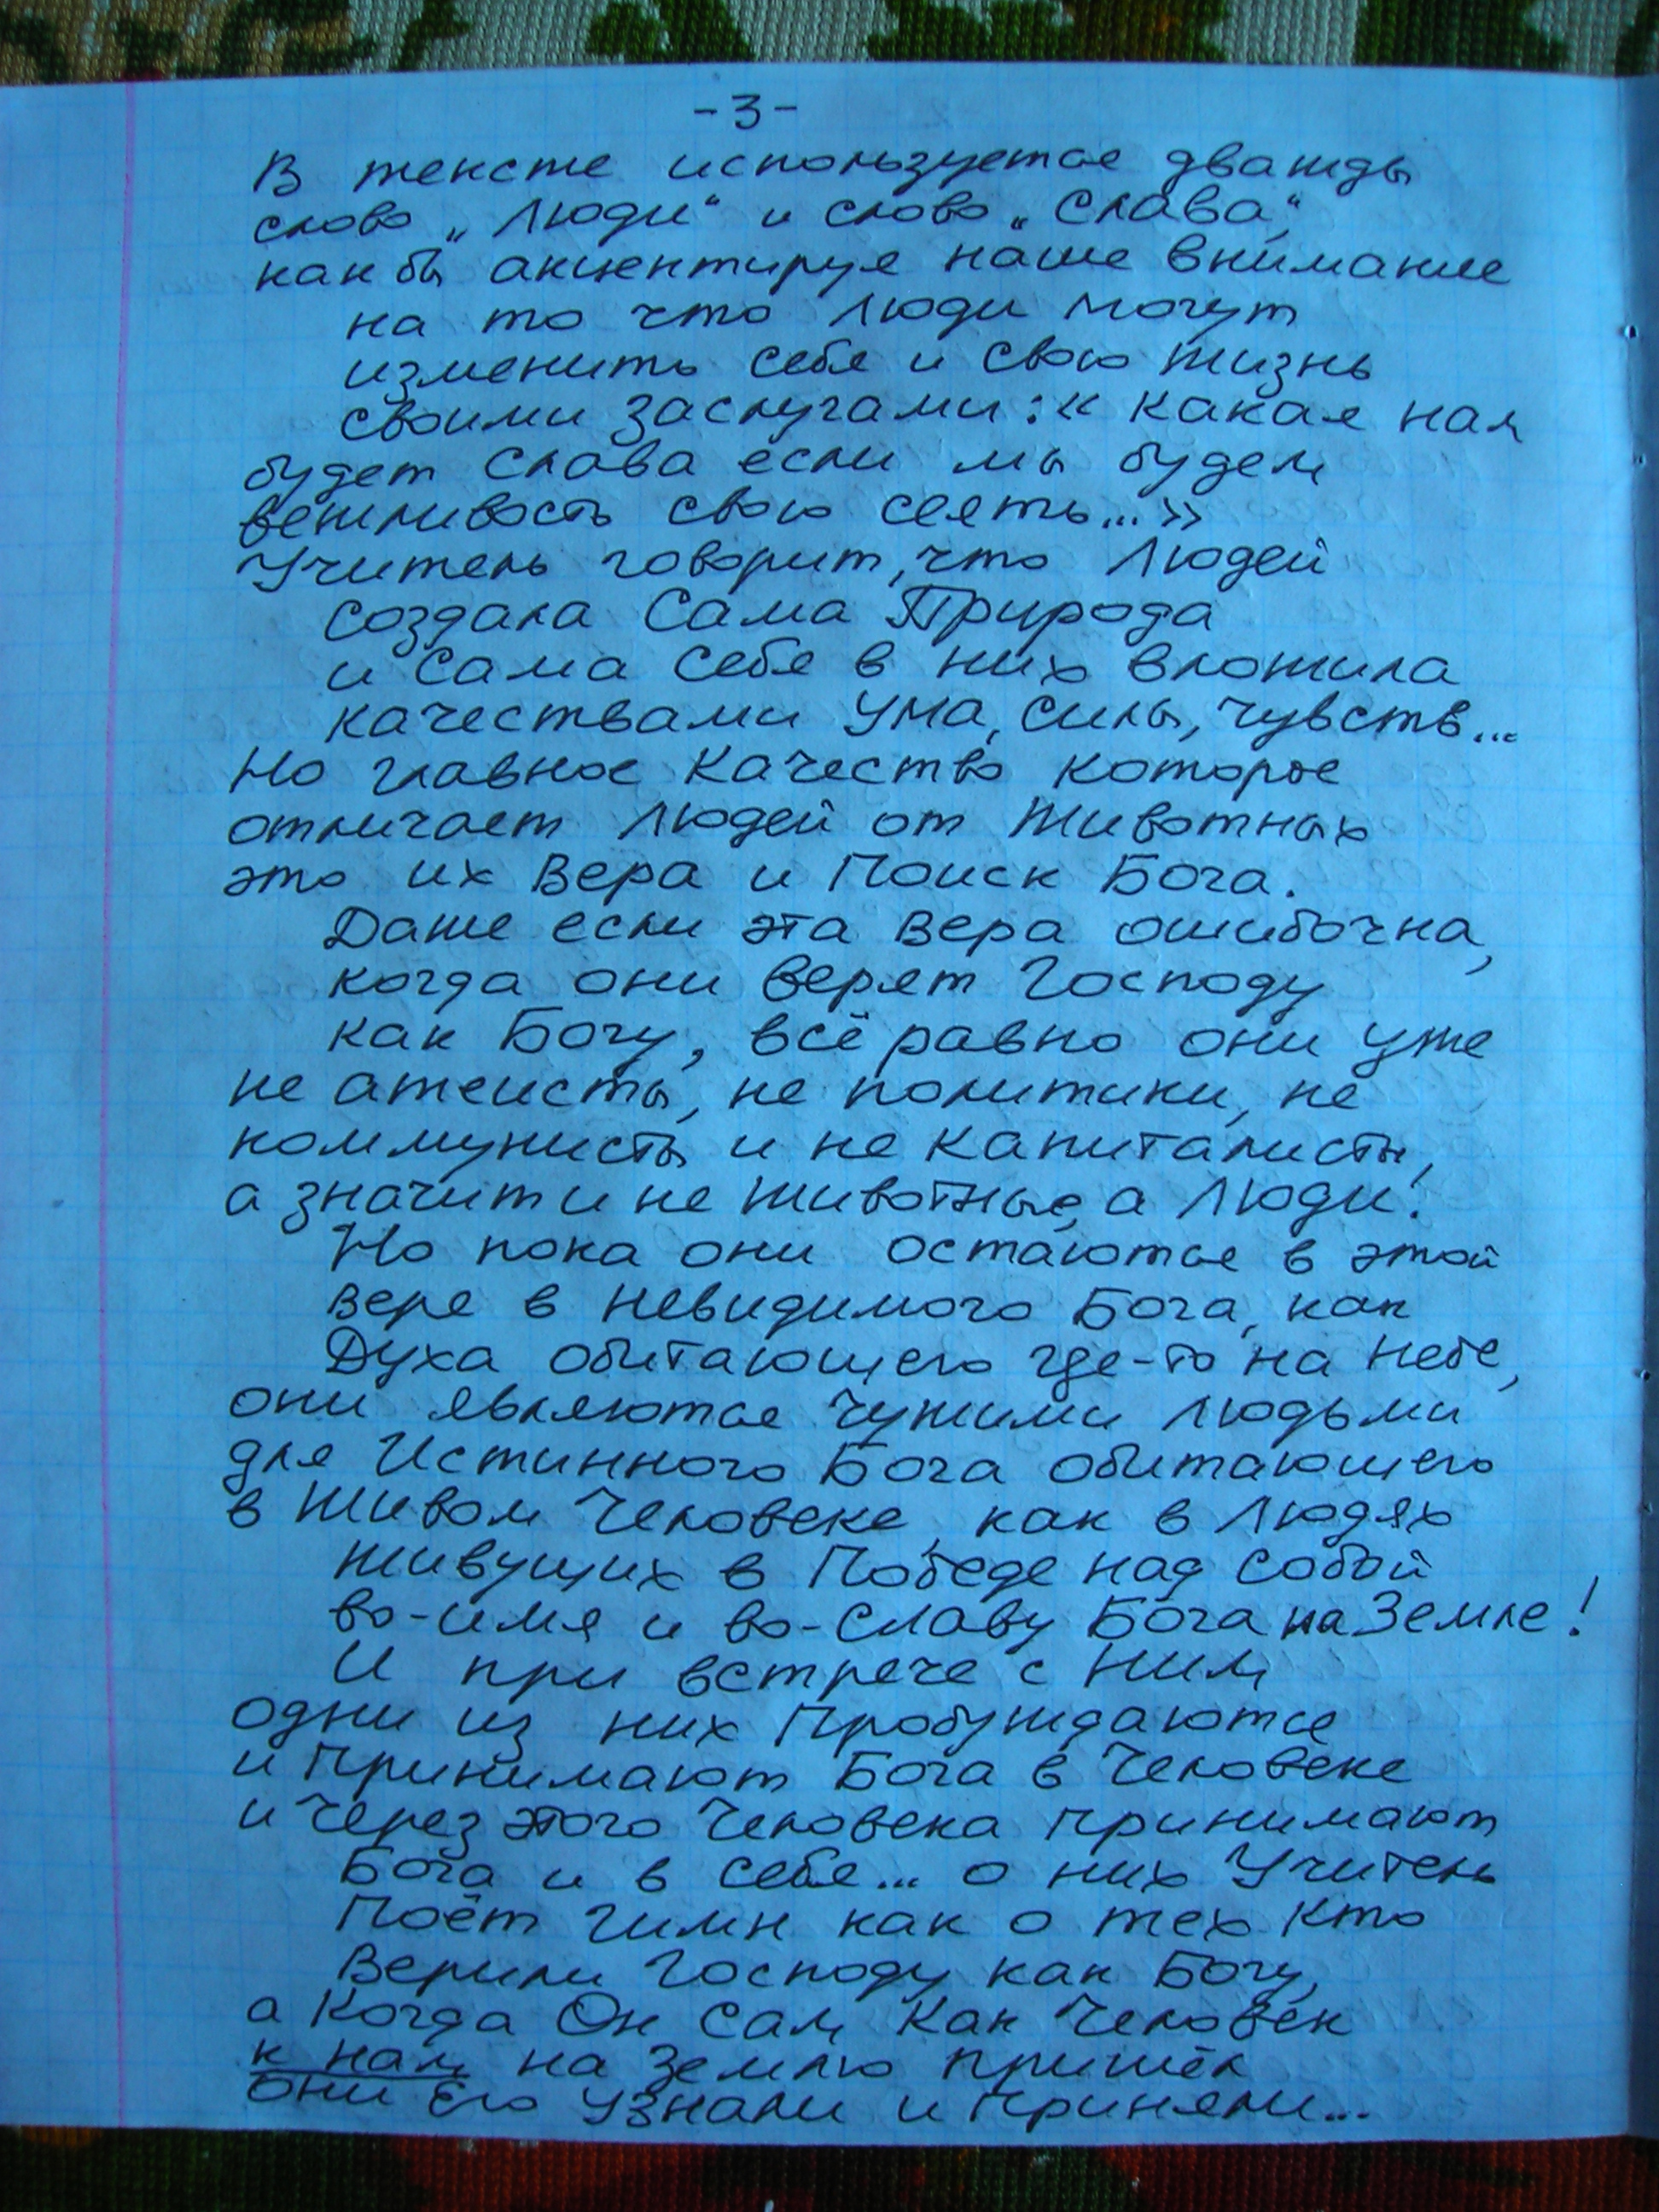 -3-
В тексте используется дважды
слово „Люди" и слово „Слава",
как бы акцентируя наше внимание
на то что люди могут
изменить себя и свою жизнь
своими заслугами: « какая нам
будет слава если мы будем
вежливость свою сеять...»
Учитель говорит, что Людей
создала Сама Природа
и Сама Себя в них вложила
качествами Ума, Силы, Чувств...
Но главное Качество которое
отличает Людей от Животных
это их Вера и Поиск Бога.
Даже если эта Вера ошибочна,
когда они верят Господу
как Богу, всё равно они уже
не атеисты, не политики, не
коммунисты и не капиталисты,
а значит и не животные, а Люди!
Но пока они остаются в этой
вере в Невидимого Бога, как
Духа обитающего где-то на Небе,
они являются Чужими Людьми
для Истинного Бога обитающего
в Живом Человеке, как в Людях
живущих в Победе над собой
во-имя и во-Славу Бога на Земле!
И при встрече с Ним
одни из них Пробуждаются
и Принимают Бога в Человеке
и Через этого Человека Принимают
Бога и в себе... о них Учитель
Поёт Гимн как о тех Кто
Верили Господу как Богу,
а Когда Он Сам Как Человек
к нам на Землю Пришёл
они Его Узнали и Приняли...